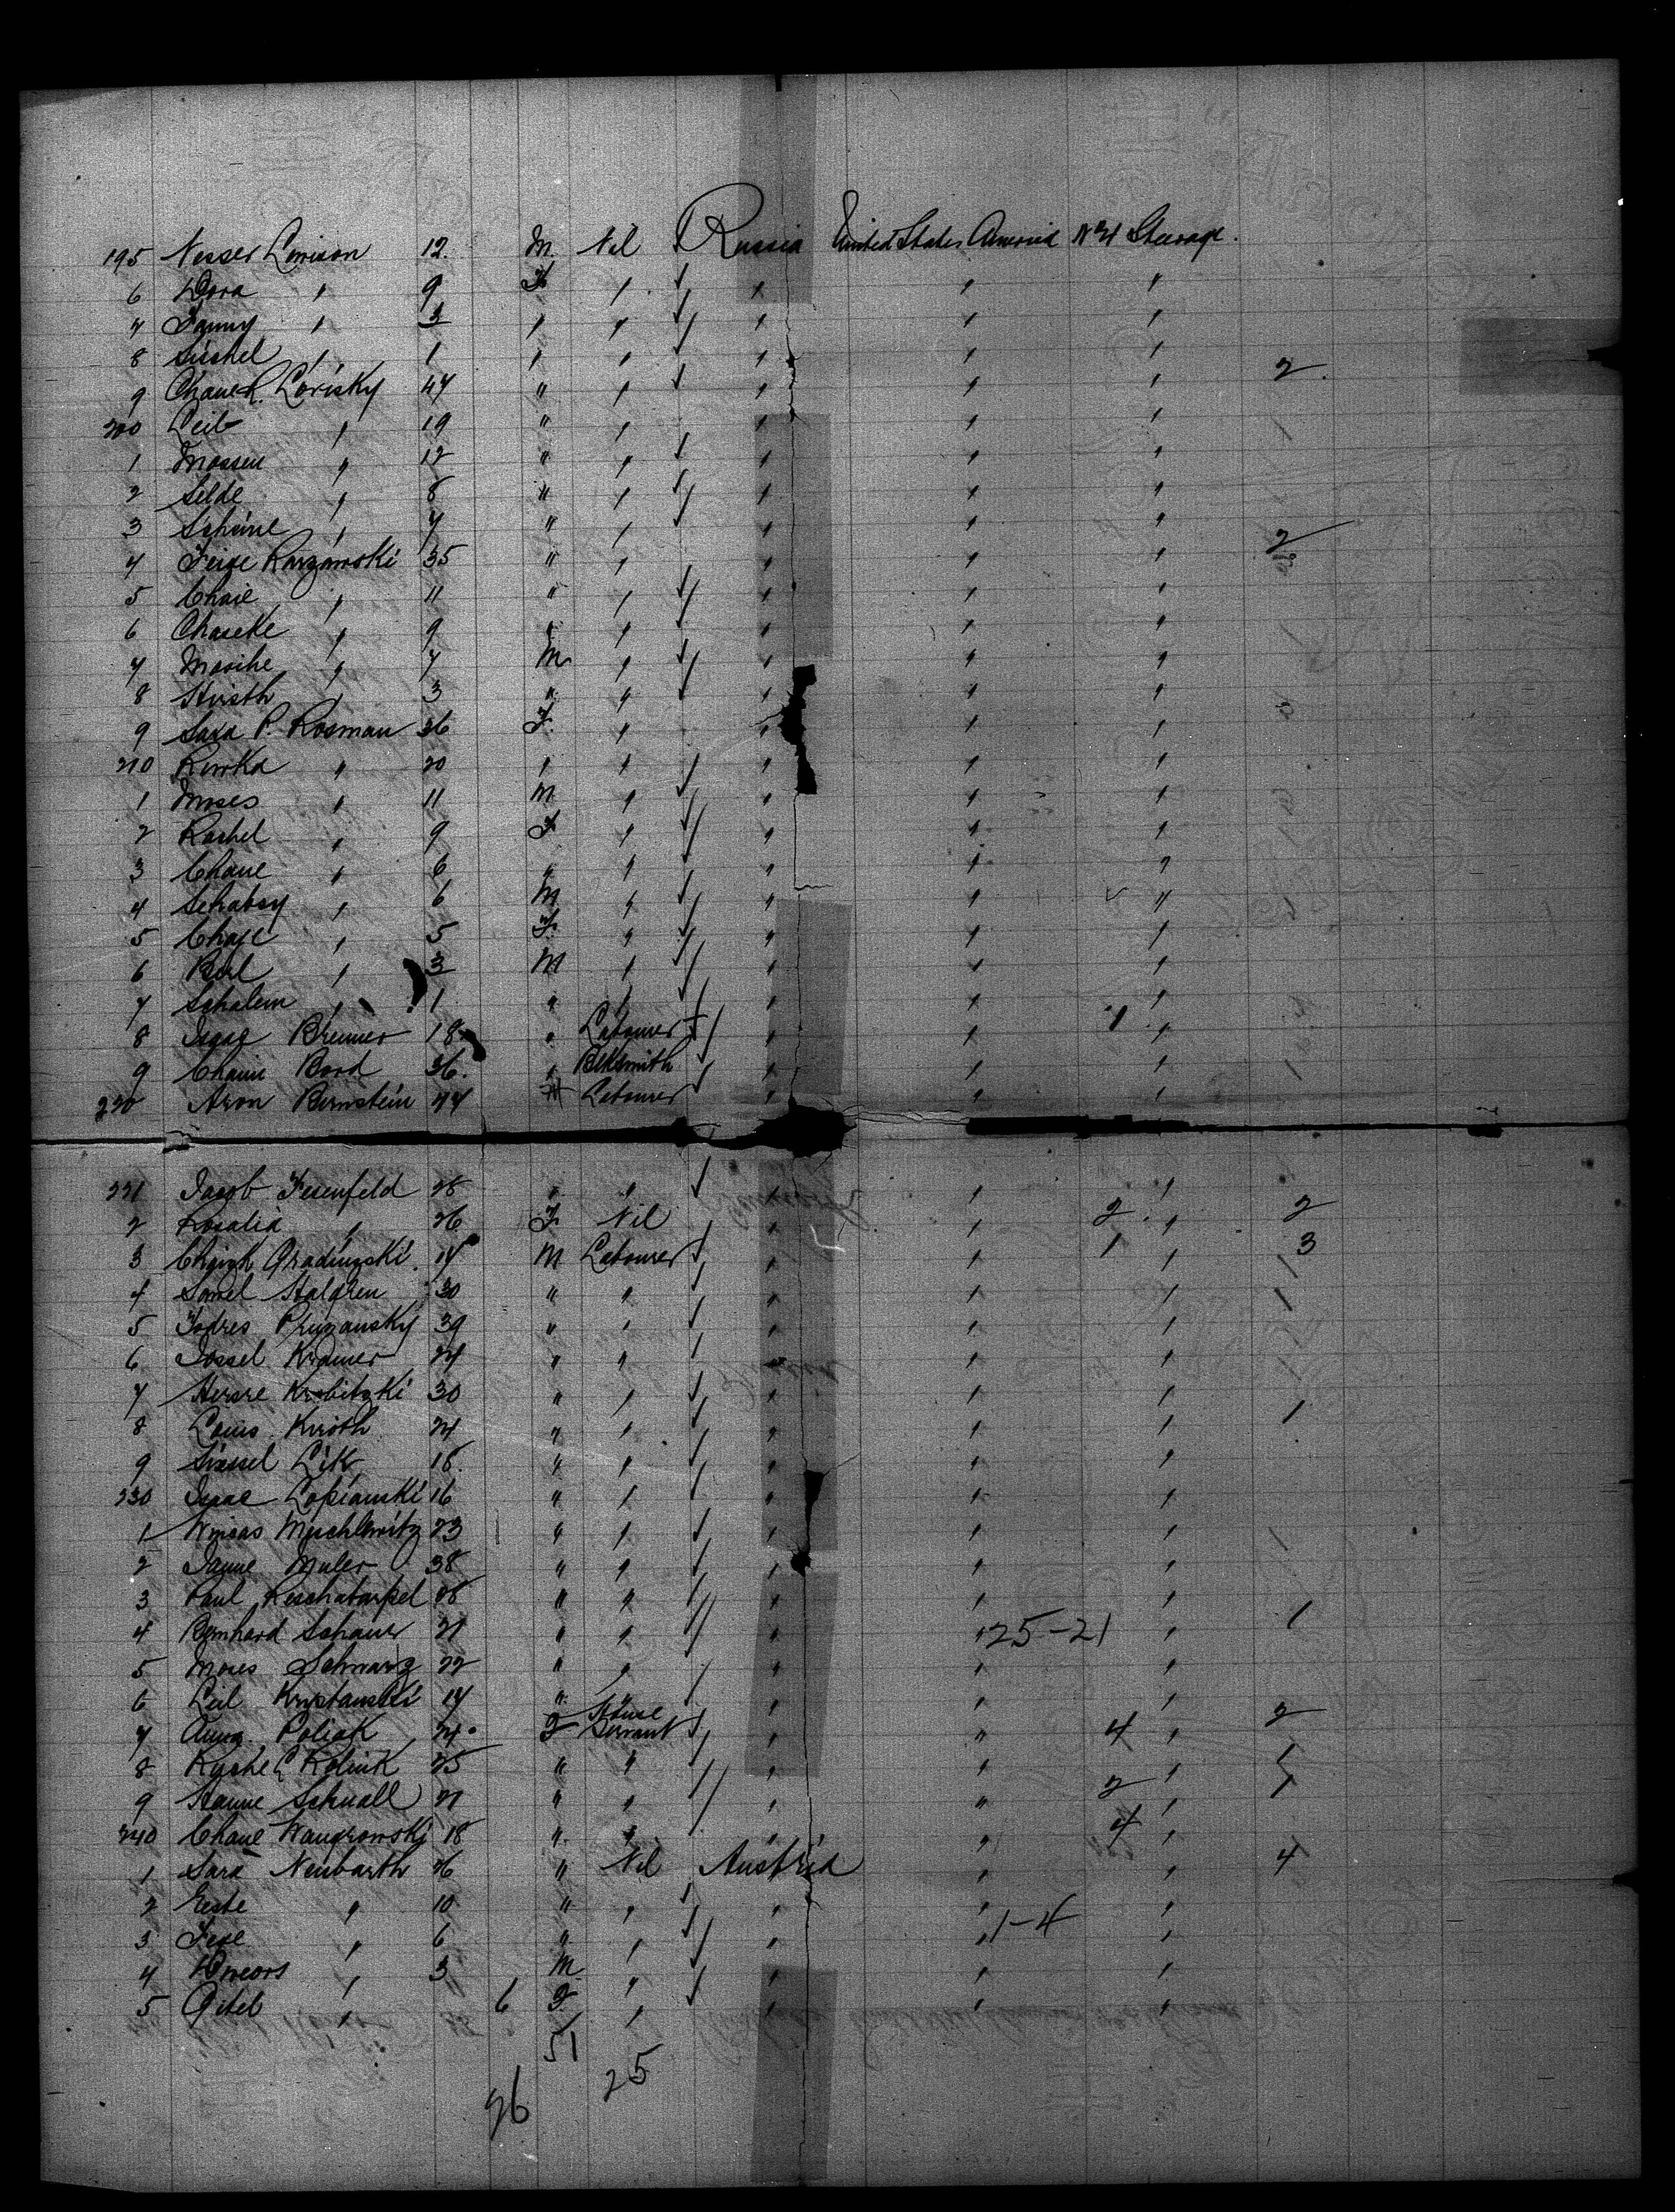 195 Nesser Lewison 12. M. Nil Russia United States America No 4 Steerage.
6 Dora " 9 F " " " "
7 Fanny " 3 " " " " "
8 Sischel " 1 " " " " "
9 Chane L. Lorisky 47 " " " " " 2
200 Leib " 19 " " " " "
1 Mossen " 12 " " " " "
2 Selde " 8 " " " " "
3 Scheine " 7 " " " " "
4 Feige Karzanoski 35 " " " " " 2
5 Chaie " 11 " " " " "
6 Chaseke " 9 " " " " "
7 Mosche " 7 M " " " "
8 Hirsth " 3 " " " " "
9 Sara P. Rosman 36 F. " " " "
210 Riwka " 20 " " " " "
1 Moses " 11 M " " " "
2 Rachel " 9 F " " " "
3 Chane " 6 " " " " "
4 Schabsy " 6 M " " " "
5 Chaje " 5 F. " " " "
6 Berl " 3 M " " " "
7 Schalem " 1 " " " " "
8 Isaac Bremer 18 " Labourer " " 1 "
9 Chaim Bord 36. " Blksmith " " "
220 Aron Bernstein 44 M Labourer " " "
221 Jacob Fesenfeld 28 " " " " "
2 Rosalia " 26 F. Nil " " 2 " 2
3 Gradinski 17 M Labourer " " 1 " 3
4 Samel Stalgren 30 " " " " "
5 Fodres Pruzansky 39 " " " " "
6 Jossel Kramer 24 " " " " "
7 Hersre Krobitzki 30 " " " " "
8 Louis Kiroth 24 " " " " " 1
9 Siessel Lik 18. " " " " "
230 Isaac Lopianski 16 " " " " "
1 Mischlowitz 23 " " " " "
2 Janne Muler 38 " " " " "
3 Paul 28 " " " " "
4 Bernhard Schauer 21 " " " " 25-21 " 1
5 Moses Schwarz 22 " " " " "
6 Leil Krystanski 17 " " " " "
7 Anna Poliak 24 F House Servant " " 4 " 2
8 Rochel Kolnik 25 " " " " " 1
9 Hanne Schnall 21 " " " " 2 " 1
240 Chane Wangrowski 18 " " " " 4 "
1 Sara Neubarth 26 " Nil Austria " " 4
2 Eeste " 10 " " " " "
3 Feye " 6 " " " " 1-4 "
4 " 3 M. " " " "
5 Gitel " 6 F. " " " "
51
25
26